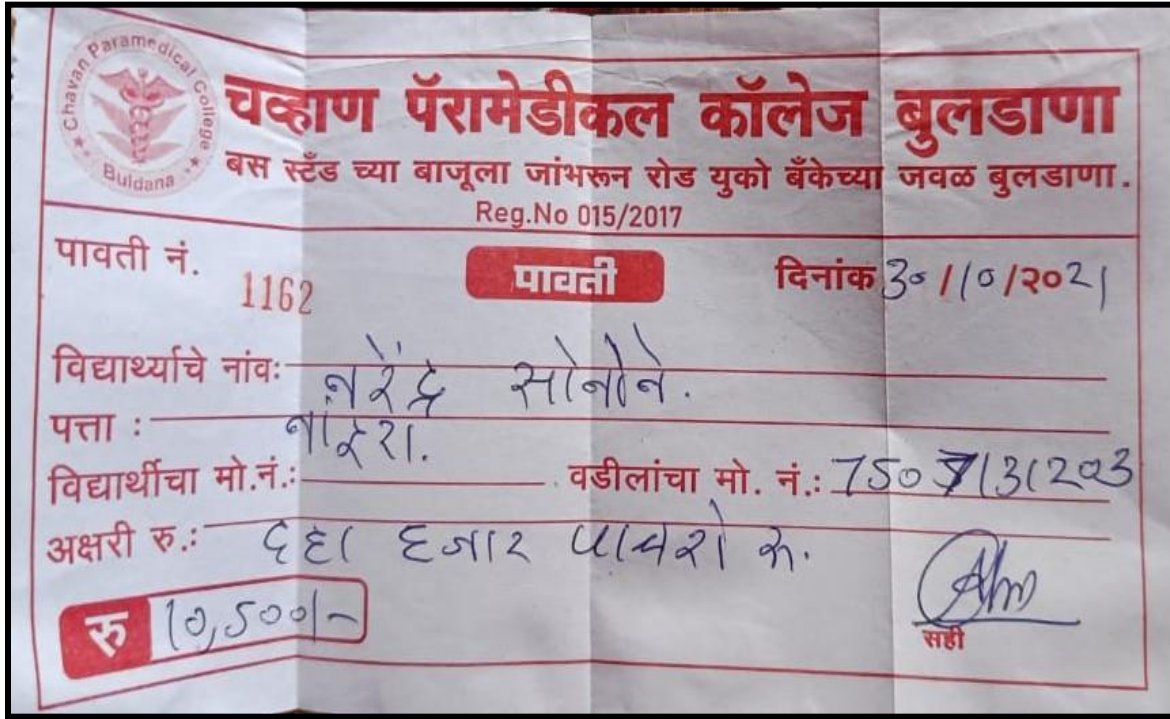 Chavan Paramedical College
Buldana
चव्हाण पॅरामेडीकल कॉलेज बुलडाणा
बस स्टँड च्या बाजूला जांभरून रोड युको बँकेच्या जवळ बुलडाणा.
Reg.No 015/2017
पावती नं. 1162 पावती दिनांक 30/10/२०21
विद्यार्थ्याचे नांवः नरेंद्र सोनोने.
पत्ता : नांद्रा.
विद्यार्थीचा मो.नं.: वडीलांचा मो. नं.:
अक्षरी रु.: दहा हजार पाचशे रू.
रु 10,500/-
सही